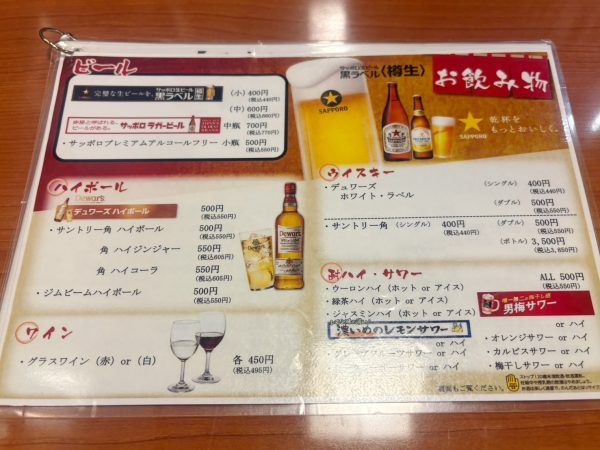 ビール
完璧な生ビールを。 サッポロ生ビール 黒ラベル 樽生 (小) 400円
(税込440円)
(中) 600円
(税込660円)
サッポロラガービール 中瓶 700円
(税込770円)
・サッポロプレミアムアルコールフリー 小瓶 500円
(税込550円)
ハイボール
Dewar's
デュワーズ ハイボール 500円
(税込550円)
・サントリー角 ハイボール 500円
(税込550円)
角 ハイジンジャー 550円
(税込605円)
角 ハイコーラ 550円
(税込605円)
・ジムビームハイボール 500円
(税込550円)
Dewar's
ワイン
・グラスワイン (赤) or (白) 各 450円
(税込495円)
サッポロ生ビール
黒ラベル (樽生)
お飲み物
SAPPORO
SAPPORO
乾杯を
もっとおいしく。
ウイスキー
・デュワーズ (シングル) 400円
(税込440円)
ホワイト・ラベル (ダブル) 500円
(税込550円)
・サントリー角 (シングル) 400円 (ダブル) 500円
(税込440円) (税込550円)
(ボトル) 3,500円
(税込3,850円)
酎ハイ・サワー
ALL 500円
(税込550円)
・ウーロンハイ (ホット or アイス)
・緑茶ハイ (ホット or アイス)
・ジャスミンハイ (ホット or アイス)
男梅サワー
濃いめのレモンサワー
or ハイ
or ハイ
・オレンジサワー or ハイ
サワー or ハイ
・カルピスサワー or ハイ
サワー or ハイ
・梅干しサワー or ハイ
裏面もご覧ください。